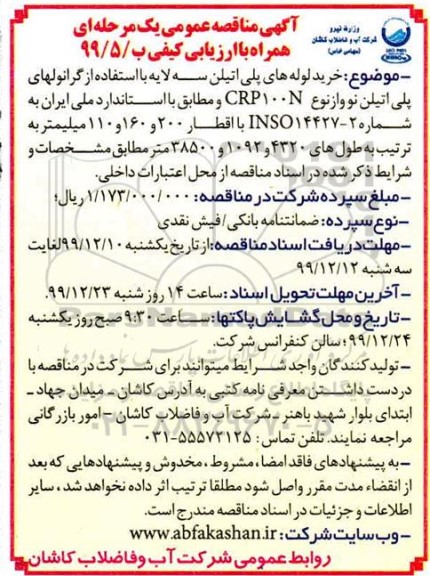 وزارت نیرو
شرکت آب و فاضلاب کاشان
(سهامی خاص)
آگهی مناقصه عمومی یک مرحله ای
همراه با ارزیابی کیفی ب/۹۹/۵
-موضوع: خرید لوله های پلی اتیلن سه لایه با استفاده از گرانولهای
پلی اتیلن نو و از نوع CRP۱۰۰N و مطابق با استاندارد ملی ایران به
شماره INSO۱۴۴۲۷-۲ با اقطار ۲۰۰ و ۱۶۰ و ۱۱۰ میلیمتر به
ترتیب به طول های ۴۳۲۰ و ۱۰۹۲ و ۳۸۵۰۰ متر مطابق مشخصات و
شرایط ذکر شده در اسناد مناقصه از محل اعتبارات داخلی.
-مبلغ سپرده شرکت در مناقصه: ۱/۱۷۳/۰۰۰/۰۰۰ ریال؛
-نوع سپرده: ضمانتنامه بانکی/فیش نقدی
-مهلت دریافت اسناد مناقصه: از تاریخ یکشنبه ۹۹/۱۲/۱۰ لغایت
سه شنبه ۹۹/۱۲/۱۲
-آخرین مهلت تحویل اسناد: ساعت ۱۴ روز شنبه ۹۹/۱۲/۲۳.
-تاریخ و محل گشایش پاکتها: ساعت ۹:۳۰ صبح روز یکشنبه
۹۹/۱۲/۲۴؛ سالن کنفرانس شرکت.
-تولید کنندگان واجد شرایط میتوانند برای شرکت در مناقصه با
در دست داشتن معرفی نامه کتبی به آدرس کاشان - میدان جهاد -
ابتدای بلوار شهید باهنر - شرکت آب و فاضلاب کاشان - امور بازرگانی
مراجعه نمایند. تلفن تماس: ۵۵۵۷۳۱۲۵-۰۳۱
-به پیشنهادهای فاقد امضا، مشروط، مخدوش و پیشنهادهایی که بعد
از انقضاء مدت مقرر واصل شود مطلقا ترتیب اثر داده نخواهد شد، سایر
اطلاعات و جزئیات در اسناد مناقصه مندرج است.
-وب سایت شرکت: www.abfakashan.ir
روابط عمومی شرکت آب و فاضلاب کاشان